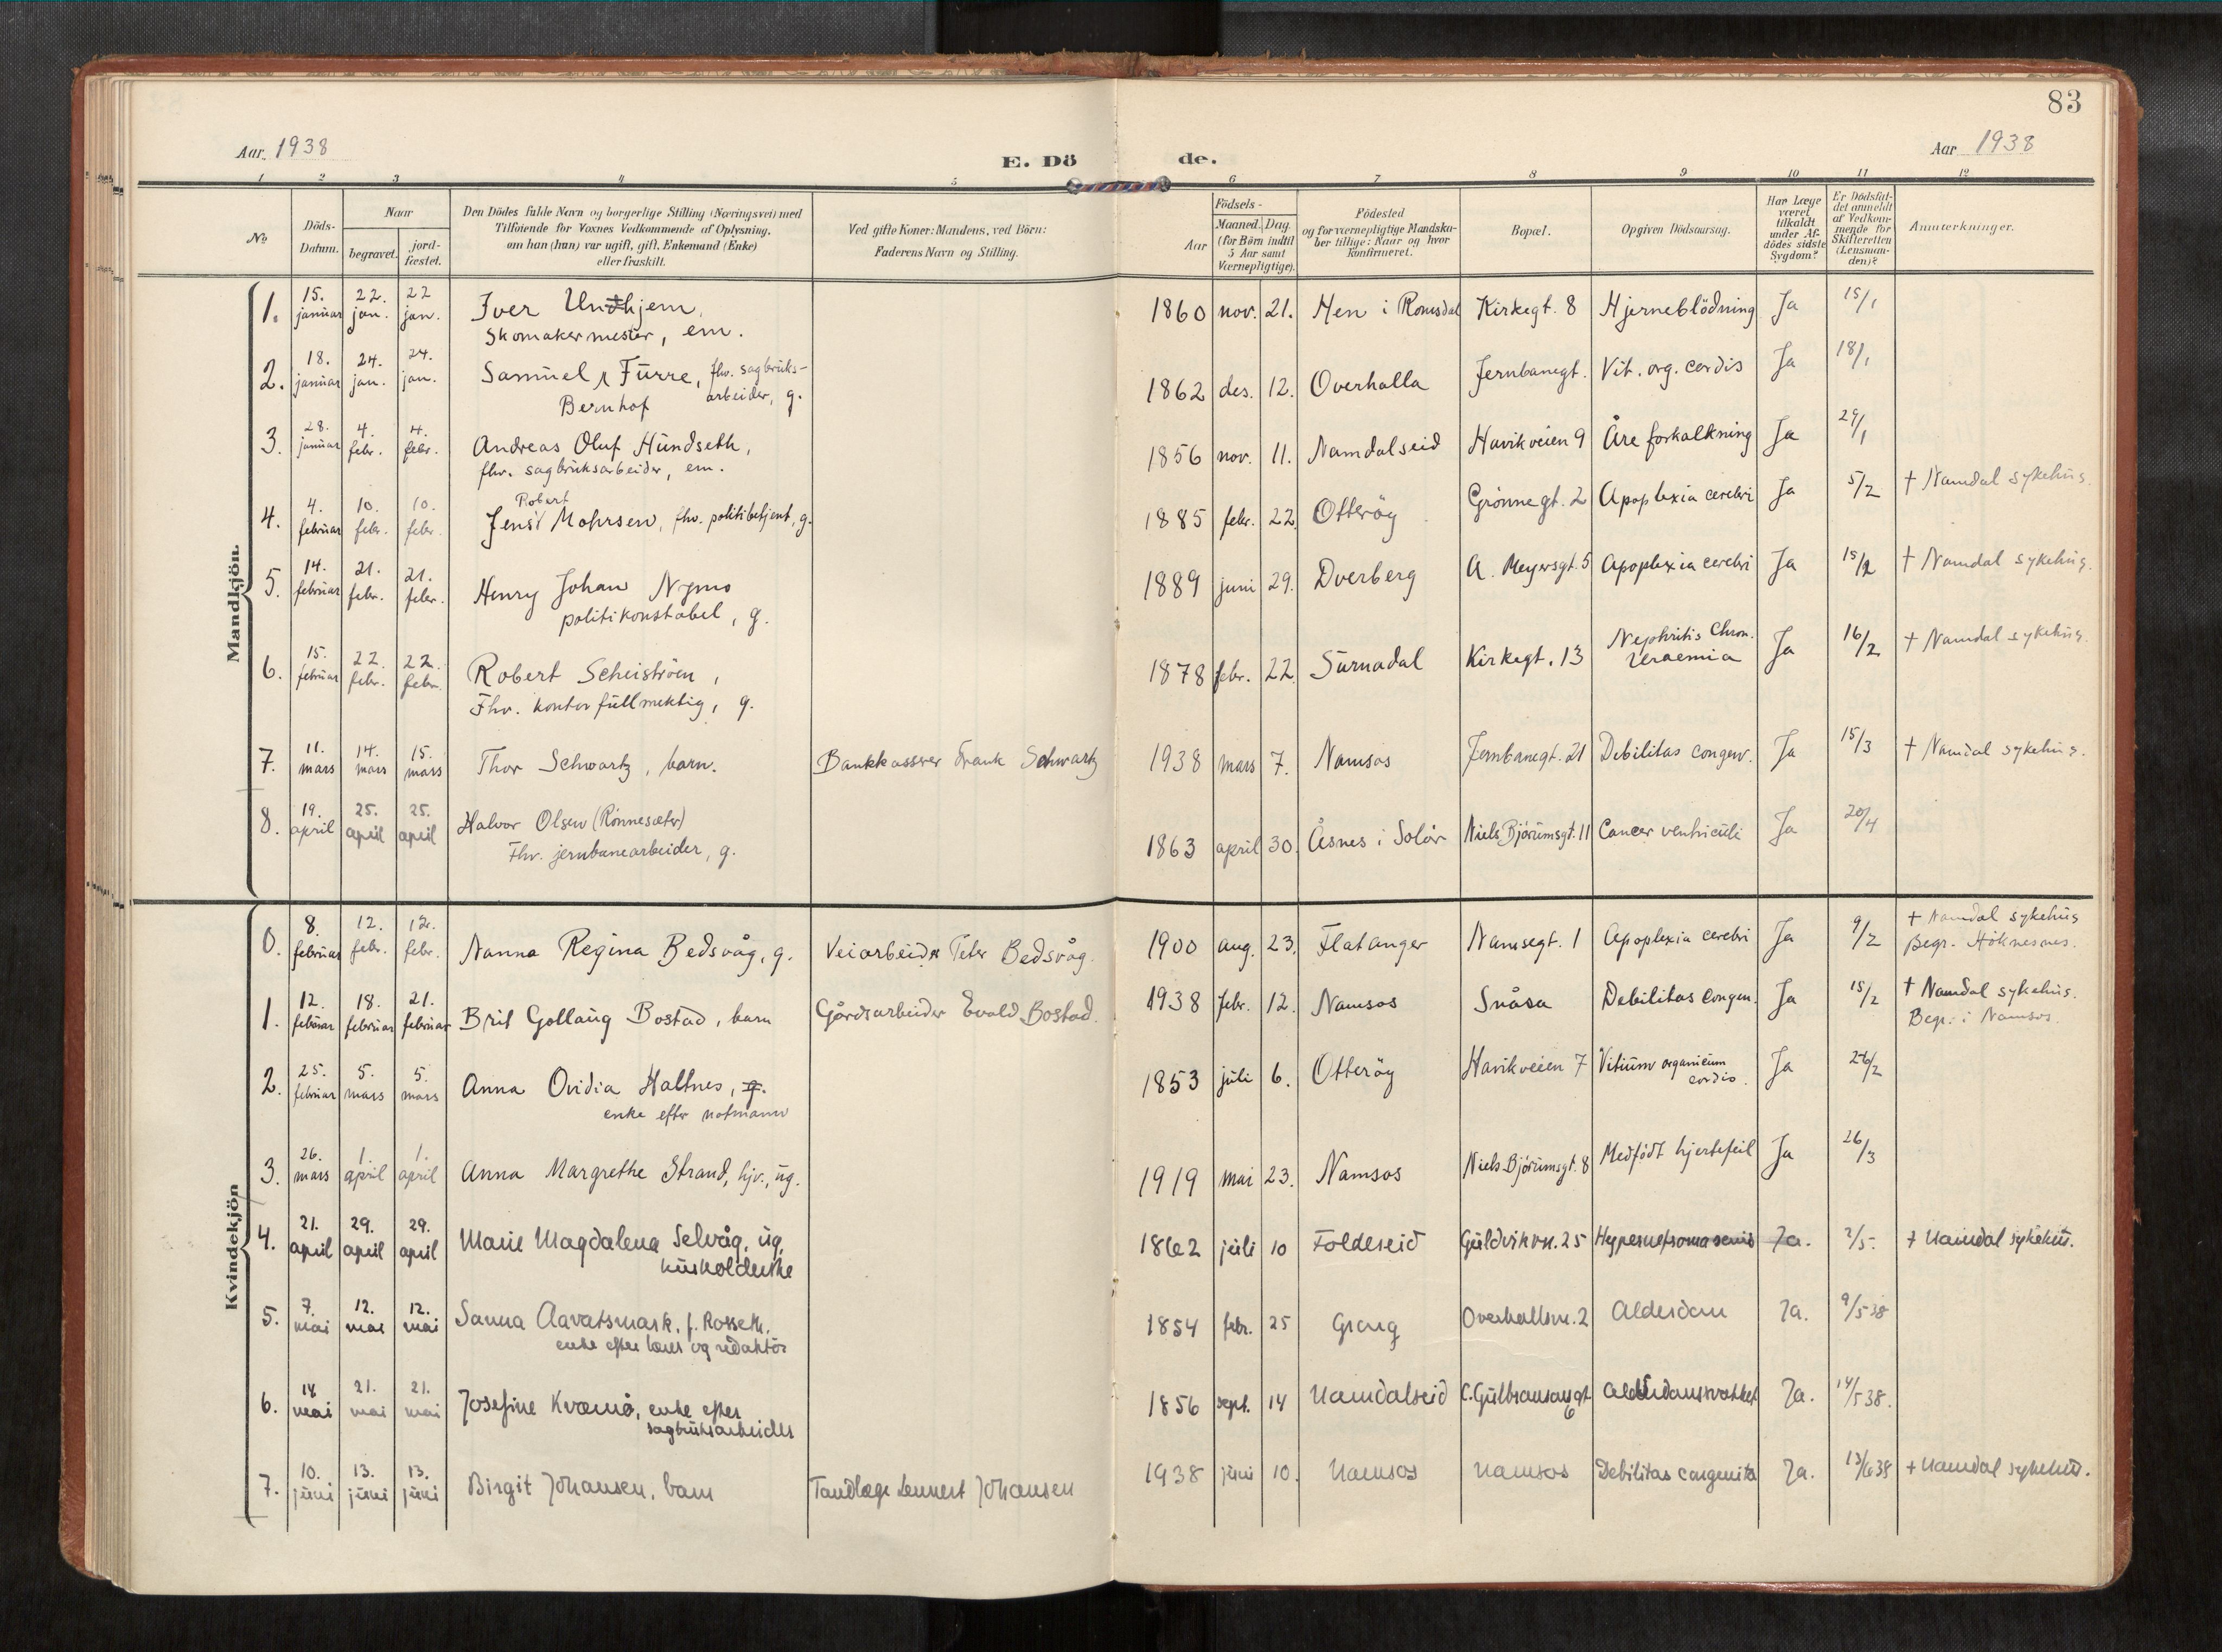 83
Aar 1938
E. Dö
de.
Aar 1938
1 2 3 4 5 6 7 8 9 10 11 12
No
Döds-
Datum.
Naar
begravet.
jord-
fæstet.
Den Dödes fulde Navn og borgerlige Stilling (Næringsvei) med
Tilföiende for Voxnes Vedkommende af Oplysning,
om han (hun) var ugift, gift, Enkemand (Enke)
eller fraskilt.
Ved gifte Koner: Mandens, ved Börn:
Faderens Navn og Stilling.
Födsels-
Aar
Maaned. Dag.
(for Börn indtil
5 Aar samt
Værnepligtige).
Födested
og for værnepligtige Mandska-
ber tillige: Naar og hvor
Konfirmeret.
Bopæl.
Opgiven Dödsaarsag.
Har Læge
været
tilkaldt
under Af-
dödes sidste
Sygdom?
Er Dödsfal-
det anmeldt
af Vedkom-
mende for
Skifteretten
(Lensman-
den)?
Anmærkninger.
Mandkjön.
1. 15. januar 22. jan. 22 jan. Iver Unhjem,
Skomakermester, em.
1860 nov. 21. Hen i Romsdal Kirkegt. 8 Hjerneblödning Ja 15/1
2. 18. januar 24. jan. 24. jan. Samuel Furre, fhv. sagbruks-
Bernhof arbeider, g.
1862 des. 12. Overhalla Jernbanegt. Vit. org. cordis Ja 18/1
3. 28. januar 4. febr. 4. febr. Andreas Oluf Hundseth,
fhv. sagbruksarbeider, em.
1856 nov. 11. Namdalseid Havikveien 9 Åreforkalkning Ja 29/1
4. 4. februar 10. febr. 10. febr. Robert
Jens Mohrsen, fhv. politibetjent, g.
1885 febr. 22. Otteröy Grönnegt. 2 Apoplexia cerebri Ja 5/2 † Namdal sykehus.
5. 14. februar 21. febr. 21. febr. Henry Johan Nymo
politikonstabel, g.
1889 juni 29. Dverberg A. Meyersgt. 5 Apoplexia cerebri Ja 15/2 † Namdal sykehus.
6. 15. februar 22. febr. 22. febr. Robert Scheiströen,
Fhv. kontorfullmektig, g.
1878 febr. 22. Surnadal Kirkegt. 13 Nephritis Chron.
Uraemia Ja 16/2 † Namdal sykehus.
7. 11. mars 14. mars 15. mars Thor Schwartz, barn. Bankkasserer Frank Schwartz
1938 mars 7. Namsos Jernbanegt. 21 Debilitas congen. Ja 15/3 † Namdal sykehus.
8. 19. april 25. april 25. april Halvor Olsen (Rönnesæter)
Fhv. jernbanearbeider, g.
1863 april 30. Åsnes i Solör Niels Björumsgt. 11 Cancer ventriculi Ja 20/4
Kvindekjön
0. 8. februar 12. febr. 12. febr. Nanna Regina Bedsvåg, g. Veiarbeider Peter Bedsvåg.
1900 aug. 23. Flatanger Namsegt. 1 Apoplexia cerebri Ja 9/2 † Namdal sykehus
Begr. Höknesnes.
1. 12. februar 18. februar 21. februar Brit Gollaug Bostad, barn Gårdsarbeider Evald Bostad.
1938 febr. 12. Namsos Snåsa Debilitas congen. Ja 15/2 † Namdal sykehus.
Begr. i Namsos.
2. 25. februar 5. mars 5. mars Anna Ovidia Haltnes, g.
enke efter notmann
1853 juli 6. Otteröy Havikveien 7 Vitium organicum
cordis. Ja 26/2
3. 26. mars 1. april 1. april Anna Margrethe Strand, hjv., ug.
1919 mai 23. Namsos Niels Björumsgt. 8 Medfödt hjertefeil Ja 26/3
4. 21. april 29. april 29. april Marie Magdalena Selvåg, ug,
husholderske
1862 juli 10 Foldereid Guldvikvn. 25 Ja. 2/5. † Namdal sykehus.
5. 7. mai 12. mai 12. mai Sanna Aavatsmark, f. Rosseth,
enke efter lærer og redaktör
1854 febr. 25 Grong Overhallsvn. 2 Alderdom Ja. 9/5 38
6. 14 mai 21. mai 21. mai Josefine Kvæmö, enke efter
sagbruksarbeider
1856 sept. 14 Namdalseid C. Gulbransensgt
6 Alderdomssvakhet Ja. 14/5 38.
7. 10. juni 13. juni 13. juni Birgit Johansen, barn Tandlæge Lennert Johansen
1938 juni 10. Namsos Namsos Debilitas congenita Ja. 13/6 38 † Namdal sykehus.